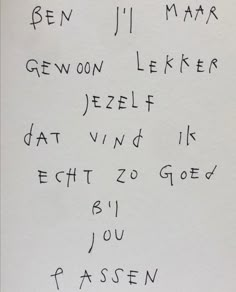 BEN JIJ MAAR
GEWOON LEKKER
JEZELF
dAT VINd IK
ECHT ZO GOEd
BIJ
JOU
PASSEN